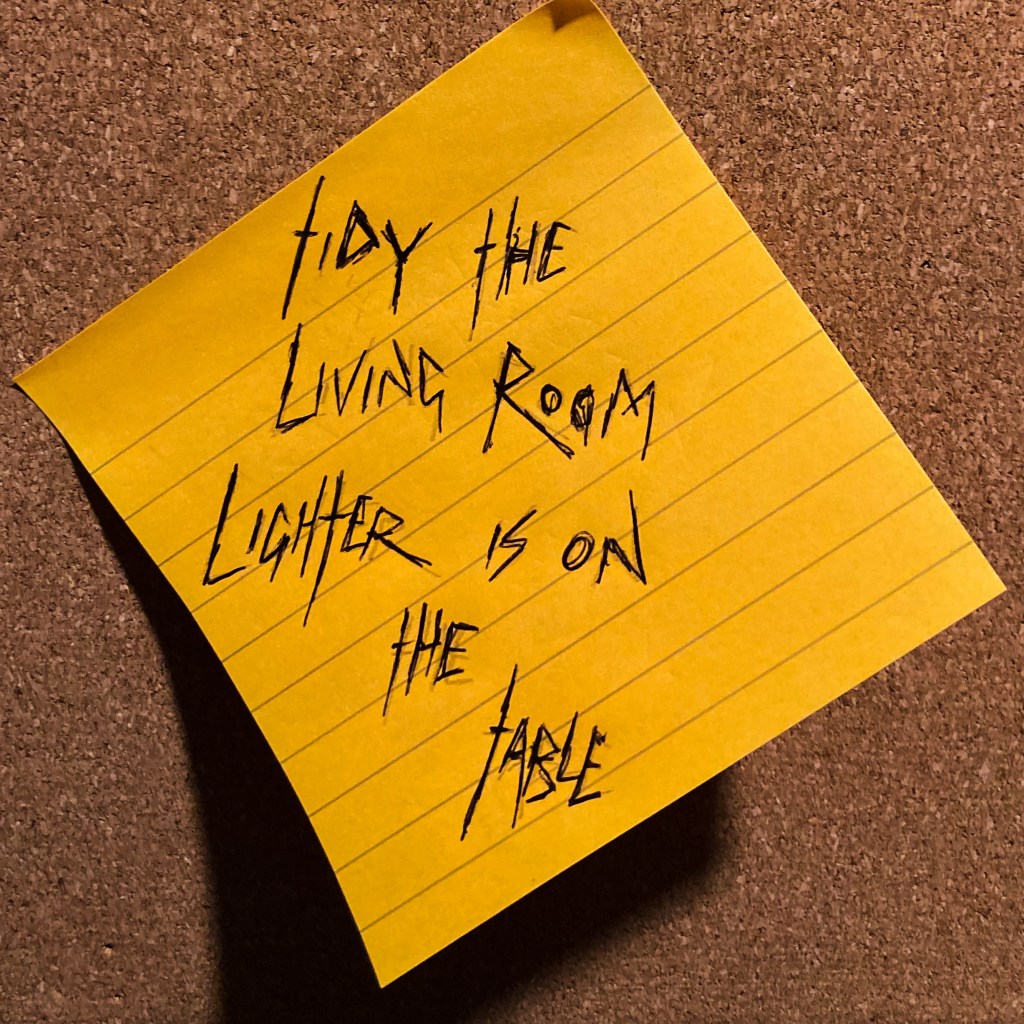 tiDY tHE
LiViNG ROOM
LiGHtER iS ON
tHE
tABLE